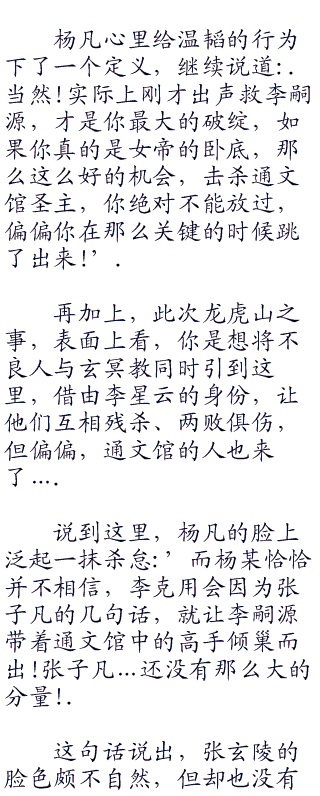 杨凡心里给温韬的行为
下了一个定义，继续说道:.
当然!实际上刚才出声救李嗣
源，才是你最大的破绽，如
果你真的是女帝的卧底，那
么这么好的机会，击杀通文
馆圣主，你绝对不能放过，
偏偏你在那么关键的时候跳
了出来!’.
再加上，此次龙虎山之
事，表面上看，你是想将不
良人与玄冥教同时引到这
里，借由李星云的身份，让
他们互相残杀、两败俱伤，
但偏偏，通文馆的人也来
了….
说到这里，杨凡的脸上
泛起一抹杀怠:’而杨某恰恰
并不相信，李克用会因为张
子凡的几句话，就让李嗣源
带着通文馆中的高手倾巢而
出!张子凡…还没有那么大的
分量!.
这句话说出，张玄陵的
脸色颇不自然，但却也没有